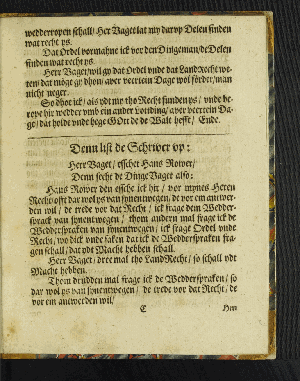 wedderropen schall/ Her Vaget lat my darvp Delen finden
wat recht ys.
Dat Ordel vormahne ick vor den Dingeman/de Delen
finden wat recht ys.
Her Vaget/wil gy dat Ordel vnde dat LandRecht we-
ten/ dat möge gy dhon/ auer veertein Dage wol förder/man
nicht neger.
So dhot ick/ als ydt my tho Recht funden ys/ vnde be-
rope hir wedder vmb ein ander Londing/ auer veertein Da-
ge/ dat holdt vnde hege GOtt de de Walt hefft/ Ende.
Denn list de Schriwer vp:
Her Vaget/ esschet Hans Rower/
Denn secht de Dinge Vaget also:
Hans Rower den essche ick hir/ vor mynes Heren
Recht offt dar wol ys van synentwegen/ de vor em antwer-
den wil/ de trede vor dat Recht/ ick frage dem Wedder-
sprack van synentwegen/ thom andern mal frage ick de
Wedderspraken van synentwegen/ ick frage Ordel vnde
Recht/ wo dick vnde faken dat ick de Wedderspraken fra-
gen schall/ dat ydt Macht hebben schall.
Her Vaget/ dree mal tho LandRecht/ so schall ydt
Macht hebben.
Thom drüdden mal frage ick de Weddersprakeen/ so
dar wol ys van synentwegen/ de trede vor dat Recht/ de
vor em antwerden wil/
C Her